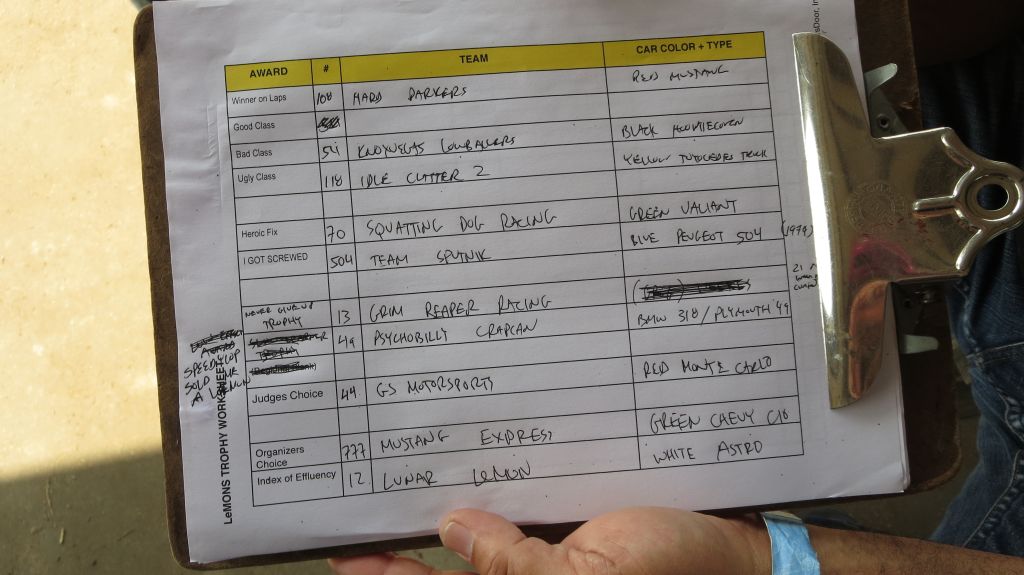 AWARD # TEAM CAR COLOR + TYPE
Winner on Laps 108 HARD PARKERS RED MUSTANG
Good Class
Bad Class 54 KNOXVEGAS LOWBALLERS BLACK
Ugly Class 118 IDLE CLATTER 2 YELLOW TRUCK
Heroic Fix 70 SQUATTING DOG RACING GREEN VALIANT
I GOT SCREWED 504 TEAM SPUTNIK BLUE PEUGEOT 504 (1979)
NEVER GIVE UP
TROPHY 13 GRIM REAPER RACING
49 PSYCHOBILLY CRAPCAN BMW 318/PLYMOUTH '49
SPEEDYCOP
SOLD ME
A LEMON
Judges Choice 44 GS MOTORSPORTS RED MONTE CARLO
Organizers
Choice 777 MUSTANG EXPRESS GREEN CHEVY C10
Index of Effluency 12 LUNAR LEMON WHITE ASTRO
LeMONS TROPHY WORKSHEET